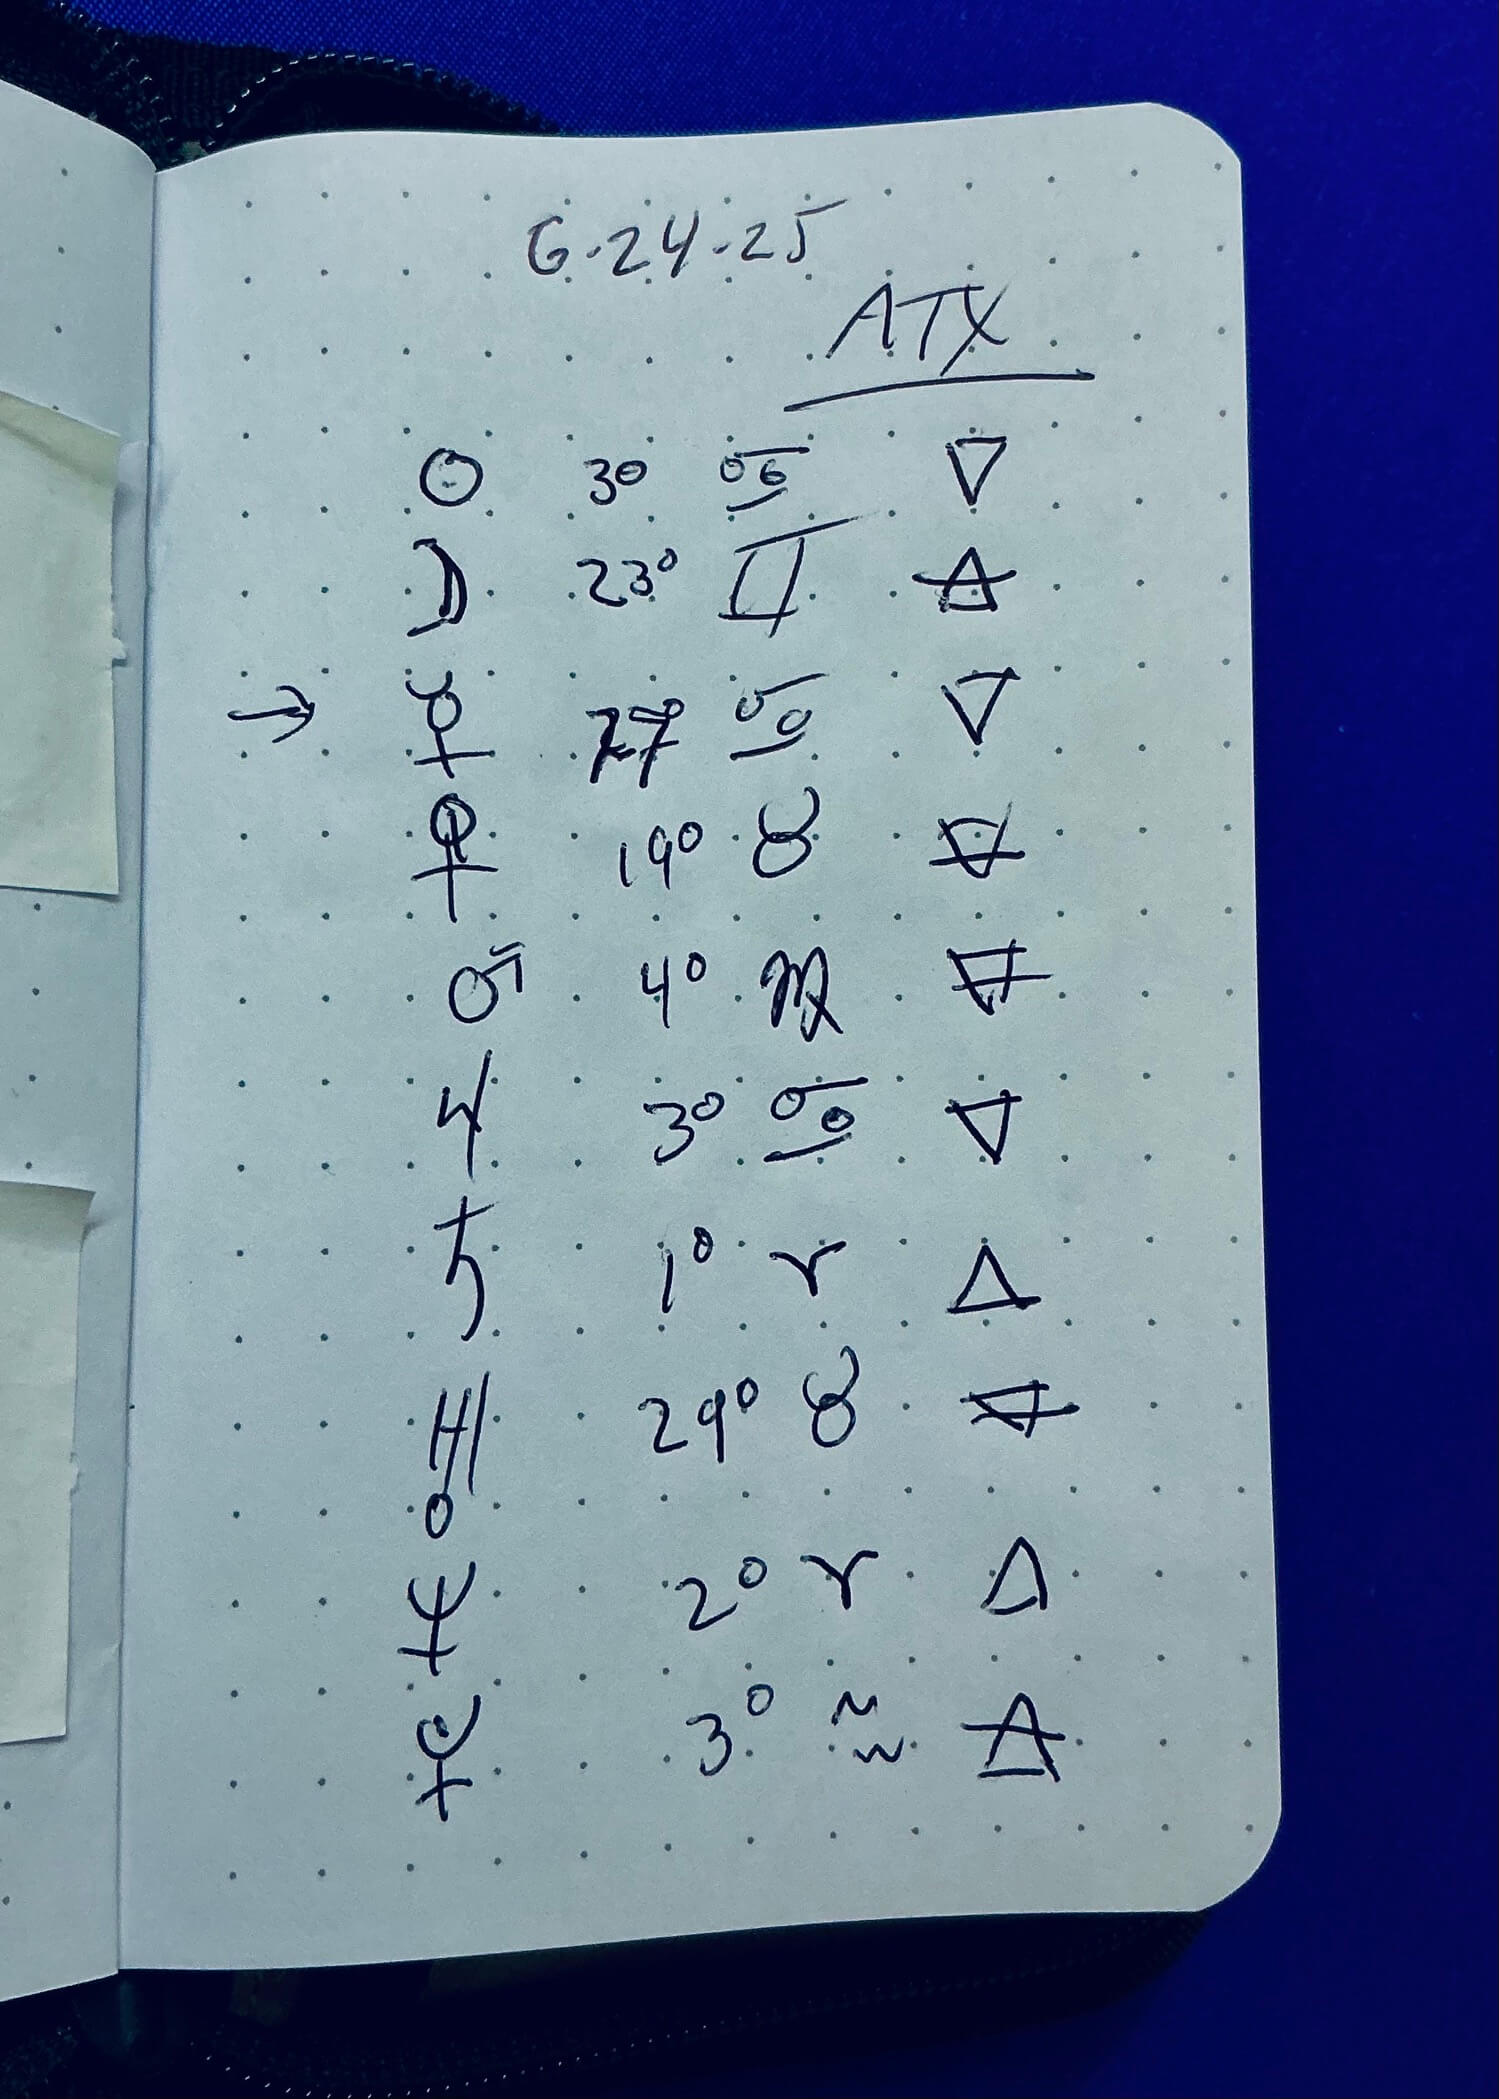 6-24-25
ATX
☉ 3° ♋ 🜄
☽ 23° ♊ 🜁
→ ☿ 27° ♋ 🜄
♀ 19° ♉ 🜃
♂ 4° ♍ 🜃
♃ 3° ♋ 🜄
♄ 1° ♈ 🜂
♅ 29° ♉ 🜃
♆ 2° ♈ 🜂
♇ 3° ♒ 🜁